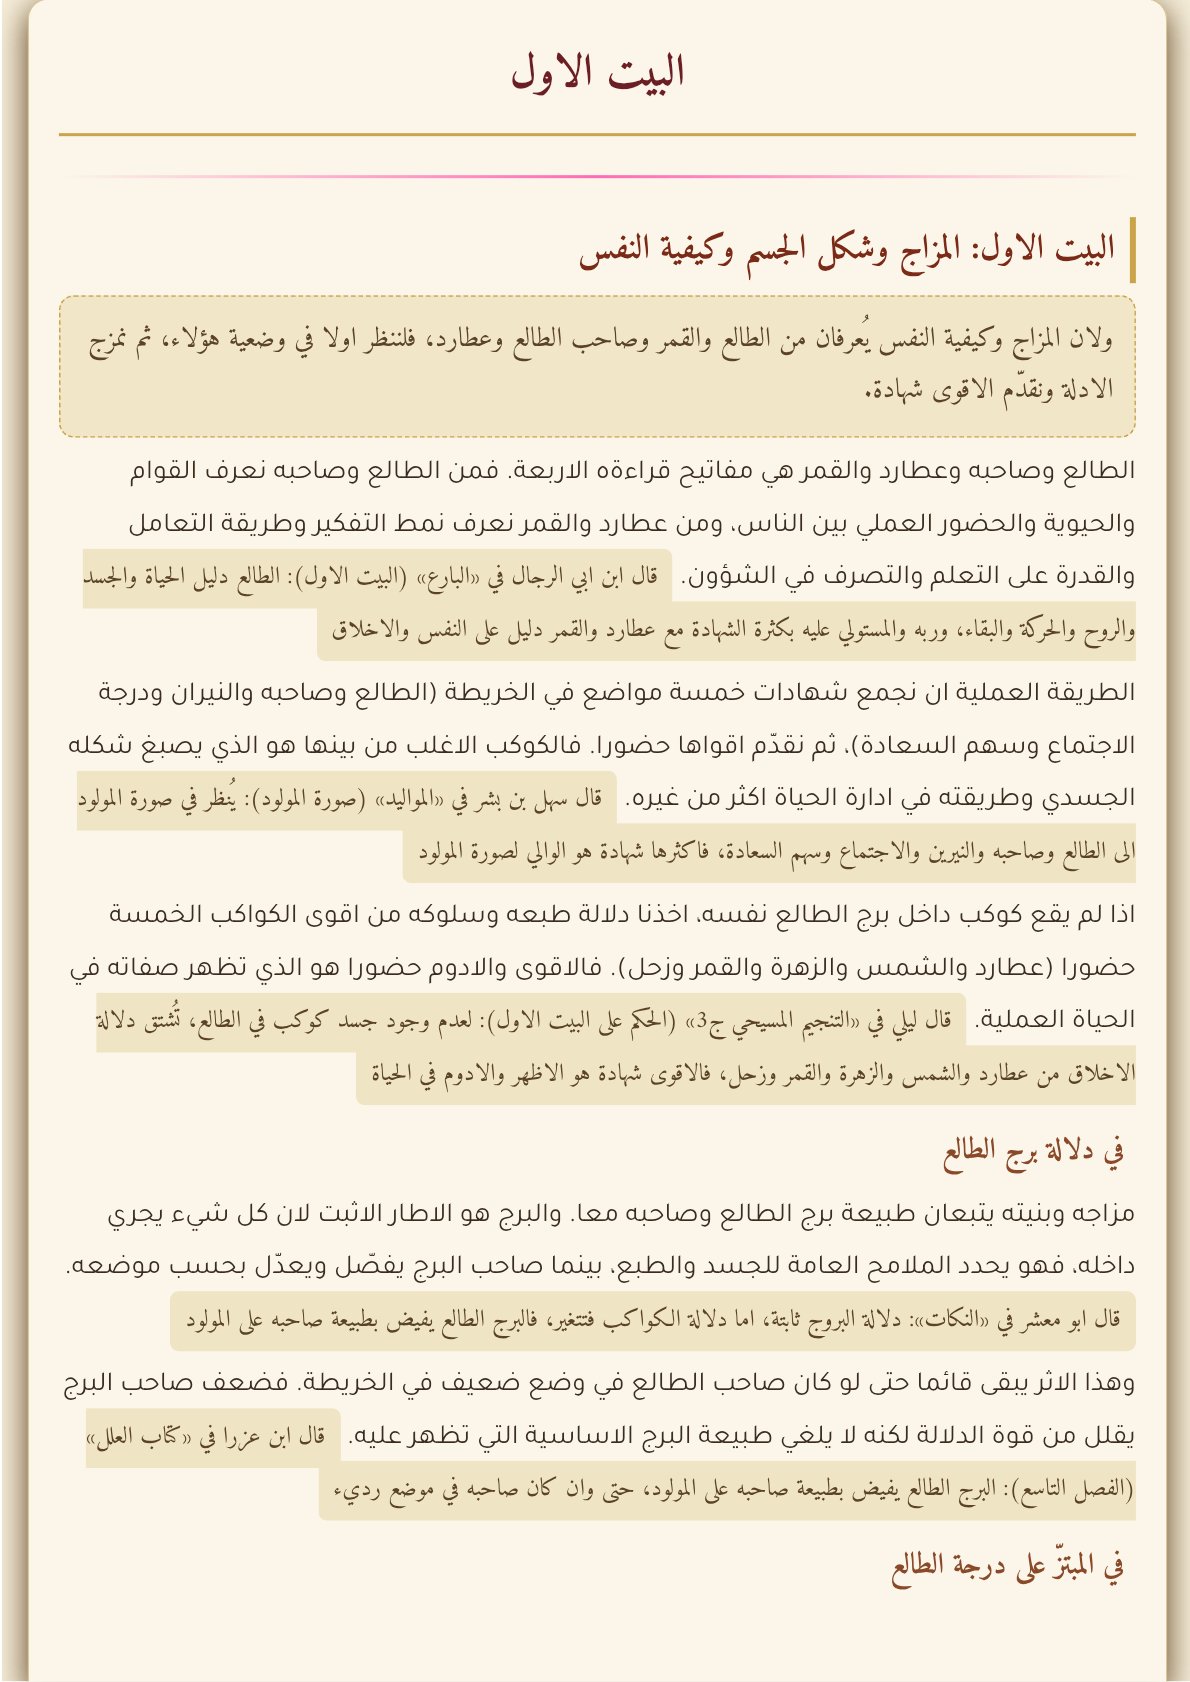 البيت الاول
البيت الاول: المزاج وشكل الجسم وكيفية النفس
ولان المزاج وكيفية النفس يُعرفان من الطالع والقمر وصاحب الطالع وعطارد، فلننظر اولا في وضعية هؤلاء، ثم نمزج
الادلة ونقدّم الاقوى شهادة.
الطالع وصاحبه وعطارد والقمر هي مفاتيح قراءةه الاربعة. فمن الطالع وصاحبه نعرف القوام
والحيوية والحضور العملي بين الناس، ومن عطارد والقمر نعرف نمط التفكير وطريقة التعامل
والقدرة على التعلم والتصرف في الشؤون. قال ابن ابي الرجال في «البارع» (البيت الاول): الطالع دليل الحياة والجسد
والروح والحركة والبقاء، وربه والمستولي عليه بكثرة الشهادة مع عطارد والقمر دليل على النفس والاخلاق
الطريقة العملية ان نجمع شهادات خمسة مواضع في الخريطة (الطالع وصاحبه والنيران ودرجة
الاجتماع وسهم السعادة)، ثم نقدّم اقواها حضورا. فالكوكب الاغلب من بينها هو الذي يصبغ شكله
الجسدي وطريقته في ادارة الحياة اكثر من غيره. قال سهل بن بشر في «المواليد» (صورة المولود): يُنظر في صورة المولود
الى الطالع وصاحبه والنيرين والاجتماع وسهم السعادة، فاكثرها شهادة هو الوالي لصورة المولود
اذا لم يقع كوكب داخل برج الطالع نفسه، اخذنا دلالة طبعه وسلوكه من اقوى الكواكب الخمسة
حضورا (عطارد والشمس والزهرة والقمر وزحل). فالاقوى والادوم حضورا هو الذي تظهر صفاته في
الحياة العملية. قال ليلي في «التنجيم المسيحي ج3» (الحكم على البيت الاول): لعدم وجود جسد كوكب في الطالع، تُشتق دلالة
الاخلاق من عطارد والشمس والزهرة والقمر وزحل، فالاقوى شهادة هو الاظهر والادوم في الحياة
في دلالة برج الطالع
مزاجه وبنيته يتبعان طبيعة برج الطالع وصاحبه معا. والبرج هو الاطار الاثبت لان كل شيء يجري
داخله، فهو يحدد الملامح العامة للجسد والطبع، بينما صاحب البرج يفصّل ويعدّل بحسب موضعه.
قال ابو معشر في «النكات»: دلالة البروج ثابتة، اما دلالة الكواكب فتتغير، فالبرج الطالع يفيض بطبيعة صاحبه على المولود
وهذا الاثر يبقى قائما حتى لو كان صاحب الطالع في وضع ضعيف في الخريطة. فضعف صاحب البرج
يقلل من قوة الدلالة لكنه لا يلغي طبيعة البرج الاساسية التي تظهر عليه. قال ابن عزرا في «كتاب العلل»
(الفصل التاسع): البرج الطالع يفيض بطبيعة صاحبه على المولود، حتى وان كان صاحبه في موضع رديء
في المبتزّ على درجة الطالع